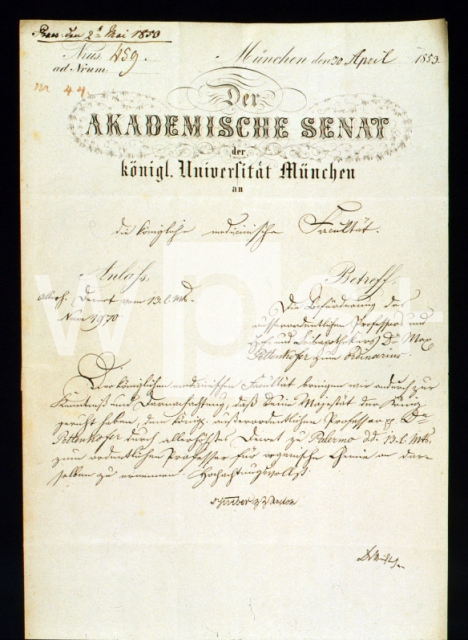 Praes. den 2n Mai 1853
Nrus. 459.
München den 30 April 1853
ad Nrum.
Nr 44
Der
AKADEMISCHE SENAT
der
königl. Universität München
an
die königliche medicinische Facultät.
Anlass
Betreff
allerh. Decret vom 13. l. Mts.
Num 1970
Die Beförderung des
ausserordentlichen Professors und
Hof- und Leibapothekers Dr Max
Pettenkofer zum Ordinarius
Der königlichen medicinischen Facultät bringen wir anderch zur
Kenntniß und Darnachachtung, daß Seine Majestät der König
geruht haben, den königl. außerordentlichen Professor Dr
Pettenkofer durch allerhöchstes Decret zu Palermo dd. 13. l. Mts.
zum ordentlichen Professor für organische Chemie an der-
selben zu ernennen. Hochachtungsvollst.
wps+